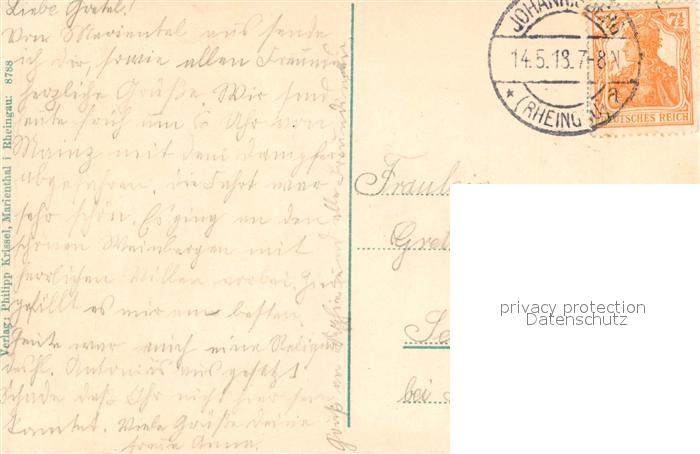 Liebe Gretel!
Von Mariental aus sende
ich dir, sowie allen
herzliche Grüße. Wir sind
heute früh um 6 Uhr von
Mainz mit dem Dampfer
abgefahren. die Fahrt war
sehr schön. Es ging an den
schönen Weinbergen mit
herrlichen Villen vorbei. Hier
gefällt es mir am besten.
Heute war auch eine
d. hl. Antonius aus gesetzt
Schade daß Ihr nicht hier sein
konntet. Viele Grüße deine
Anna.
Verlag: Philipp Krissel, Marienthal i Rheingau: 8788
JOHANNISBERG
14.5.18.7-8N
* (RHEINGAU) a
7½
DEUTSCHES REICH
Fräulein
bei
privacy protection
Datenschutz